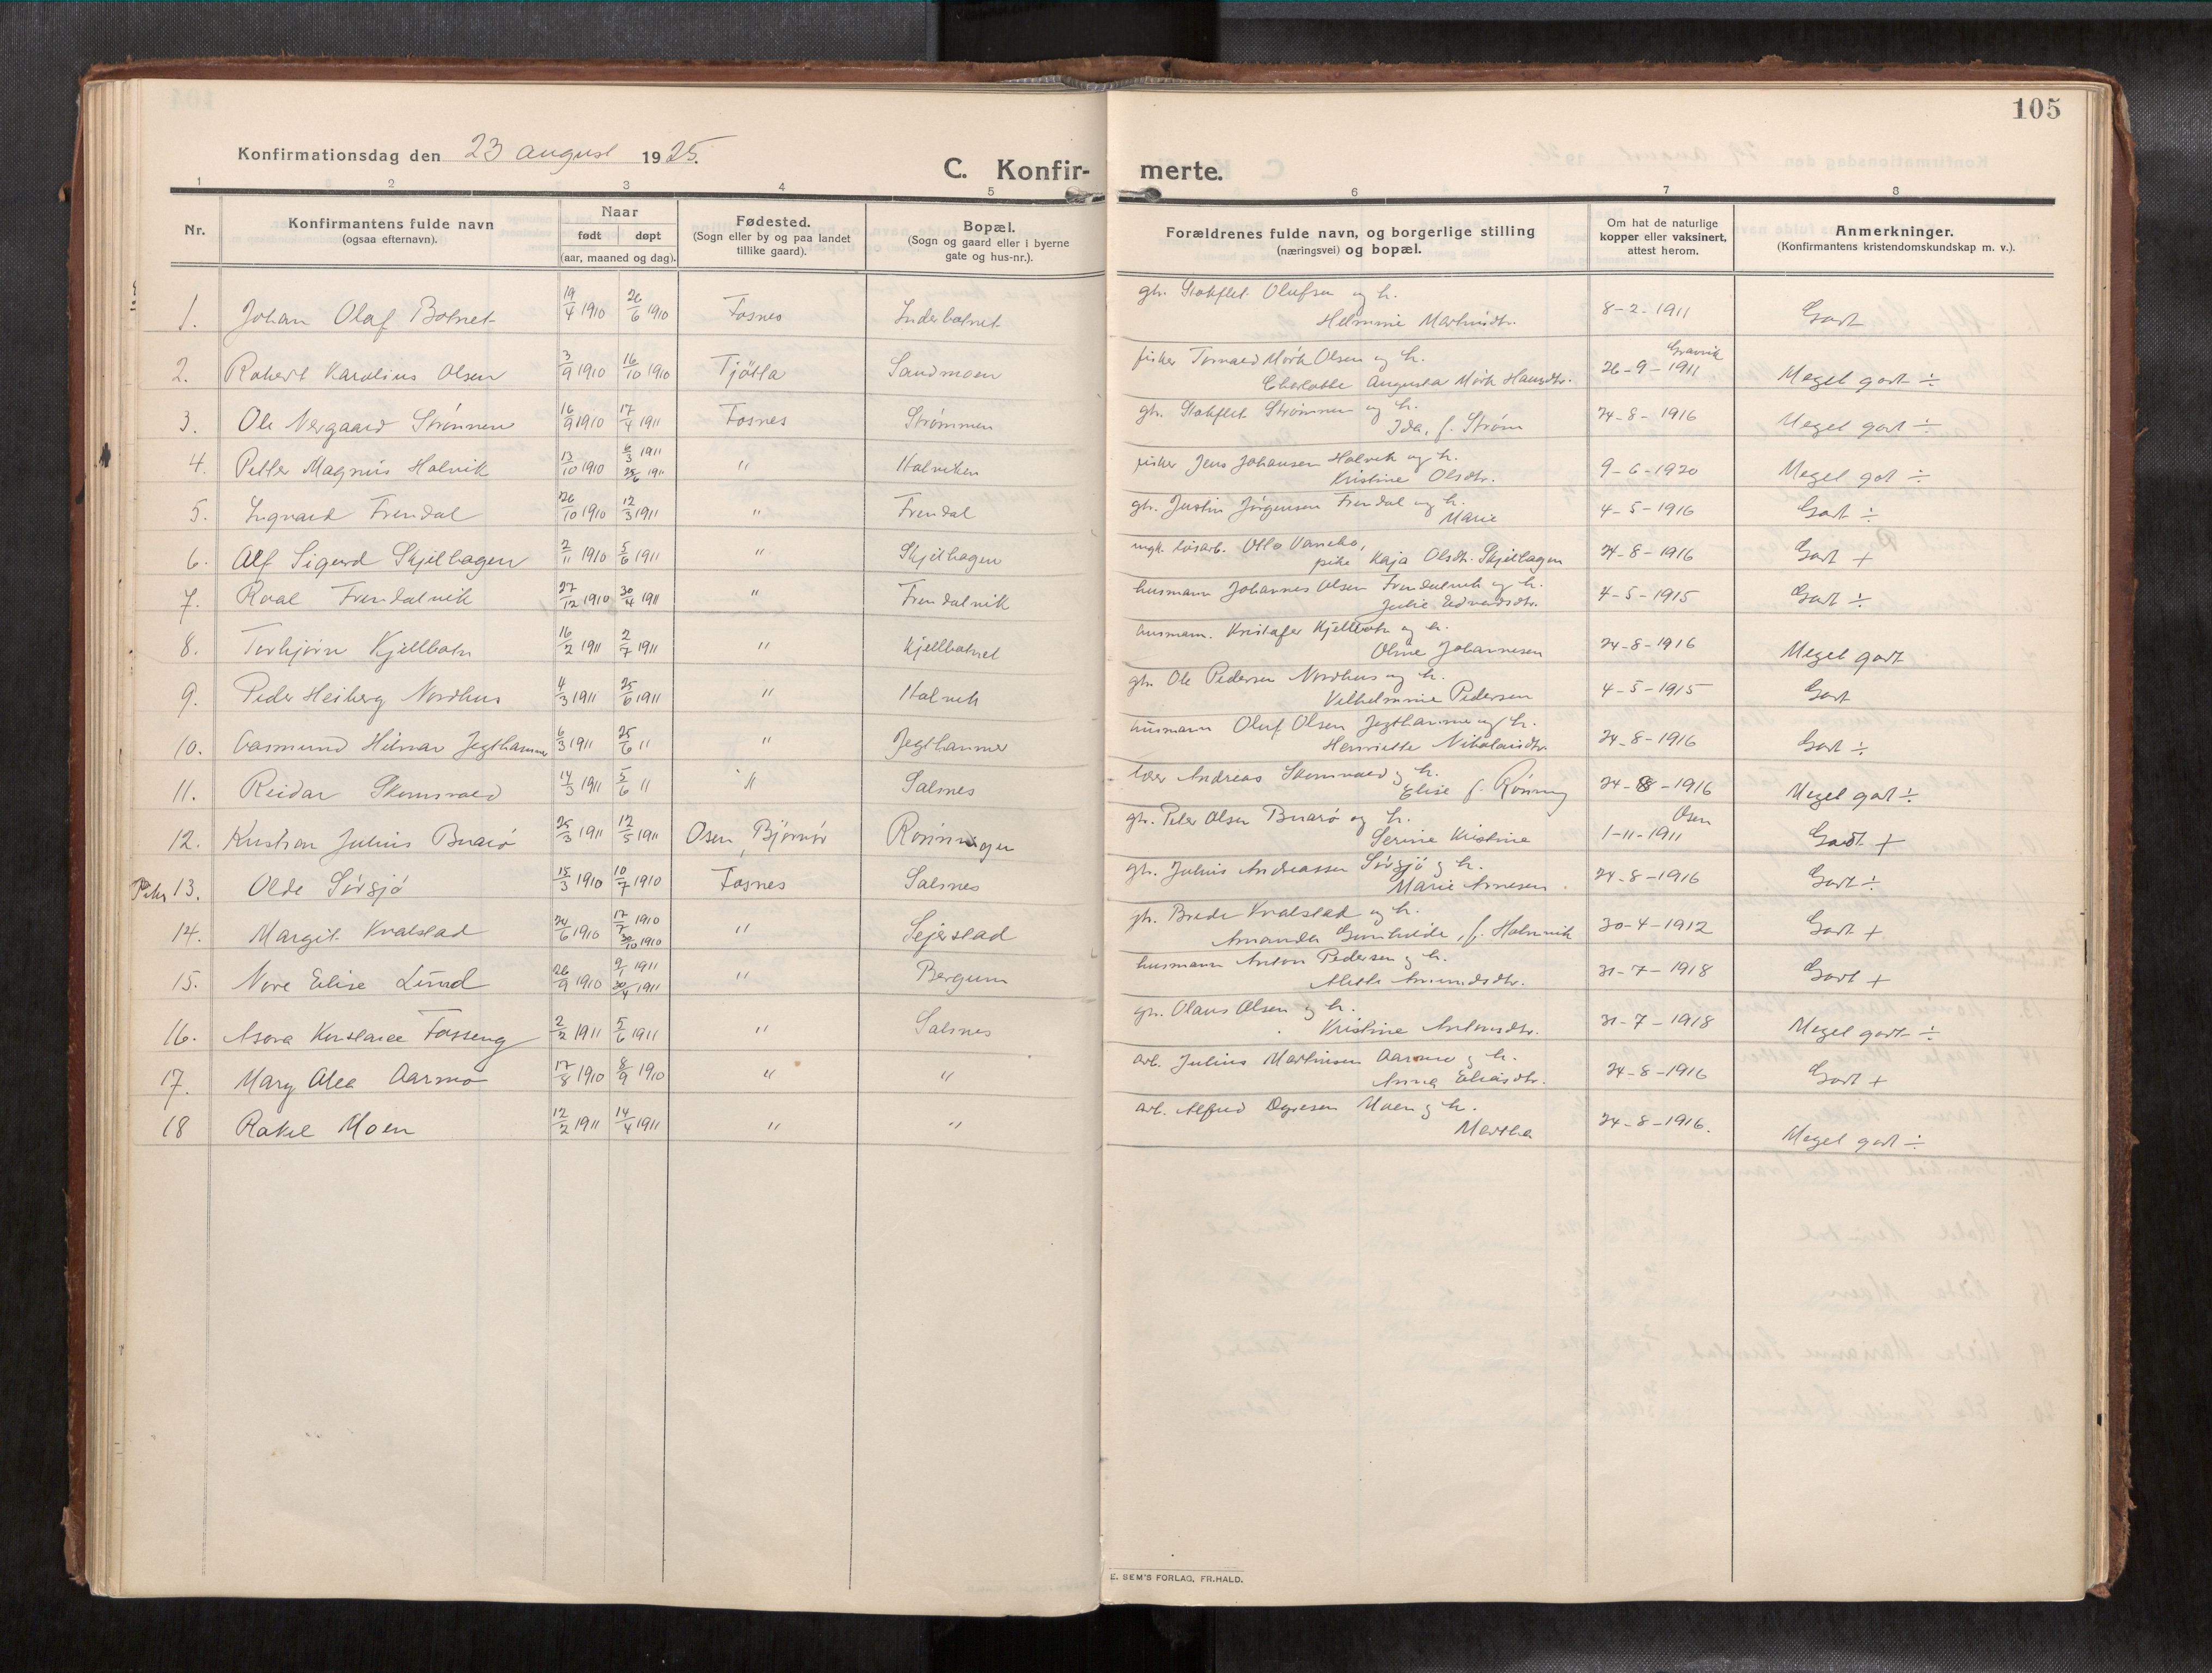 105
Konfirmationsdag den 23 august 1925.
C. Konfir- merte.
1 2 3 4 5 6 7 8
Nr.
Konfirmantens fulde navn
(ogsaa efternavn).
Naar
født døpt
(aar, maaned og dag).
Fødested.
(Sogn eller by og paa landet
tillike gaard).
Bopæl.
(Sogn og gaard eller i byerne
gate og hus-nr.).
Forældrenes fulde navn, og borgerlige stilling
(næringsvei) og bopæl.
Om hat de naturlige
kopper eller vaksinert,
attest herom.
Anmerkninger.
(Konfirmantens kristendomskundskap m. v.).
1. Johan Olaf Botnet 19/4 1910 26/6 1910 Fosnes Inderbotnet gbr. Olufsen og h. 8-2-1911 Godt
Helmine Martinsdtr.
2. Robert Karolius Olsen 3/9 1910 16/10 1910 Tjötta Sandmoen fisker Mörk Olsen og h. Gravvik 26-9-1911 Meget godt ÷
Charlotte Augusta Mörk Hansdtr.
3. Ole Nergaard Strömmen 16/9 1910 17/4 1911 Fosnes Strømmen gbr. Strömmen og h. 24-8-1916 Meget godt ÷
Ida, f. Strøm
4. Petter Magnus Halvik 13/10 1910 6/3 1911 25/6 1911 " Halviken fisker Jens Johansen Halvik og h. 9-6-1920 Meget godt ÷
Kristine Olsdtr.
5. Ingvard Frendal 26/10 1910 12/3 1911 " Frendal gbr. Justin Jörgensen Frendal og h. 4-5-1916 Godt ÷
Marie
6. Alf Sigurd Skjelhagen 2/11 1910 5/6 1911 " Skjelhagen ungk. løsarb. Otto 24-8-1916 Godt +
pike Kaja Olsdtr. Skjelhagen
7. Roal Frendalvik 27/12 1910 30/4 1911 " Frendalvik husmann Johannes Olsen Frendalvik og h. 4-5-1915 Godt ÷
Julie Edvardsdtr.
8. Torbjørn Kjellbotn 16/2 1911 2/7 1911 " Kjellbotnet husmann. Kristofer Kjellbotn og h. 24-8-1916 Meget godt
Oline Johannesen
9. Peder Heiberg Nordhus 4/3 1911 25/6 1911 " Halvik gbr. Ole Pedersen Nordhus og h. 4-5-1915 Godt
Vilhelmine Pedersen
10. Aasmund Hilmar Jegthammer 6/3 1911 25/6 11 " Jegthammer husmann Oluf Olsen Jegthammer og h. 24-8-1916 Godt ÷
Henriette Nikolaisdtr.
11. Reidar Skomsvold 14/3 1911 5/6 11 " Salsnes lærer Andreas Skomsvold og h. 24-8-1916 Meget godt ÷
Elise f. Rönning
12. Kristian Julius Buarø 25/3 1911 12/5 1911 Osen, Björnör Rønningen gbr. Peter Olsen Buarø og h. Osen 1-11-1911 Godt +
Serine Kristine
Piker 13. Olde Sörsjö 15/3 1910 10/7 1910 Fosnes Salsnes gbr. Julius Andreassen Sörsjö og h. 24-8-1916 Godt ÷
Marie Arnesen
14. Margit Kvalstad 24/6 1910 17/7 1910 30/10 1910 " Sejerstad gbr. Brede Kvalstad og h. 30-4-1912 Godt +
Amanda Gunhilde, f. Halvik
15. Nore Elise Lund 26/9 1910 9/1 1911 30/4 1911 " Bergum husmann Anton Pedersen og h. 31-7-1918 Godt +
Alette Amundsdtr.
16. Asora Konstance Fosseng 2/2 1911 5/6 1911 " Salsnes gbr. Olaus Olsen og h. 31-7-1918 Meget godt ÷
Kristine Antonsdtr.
17. Mary Alea Aarmo 17/8 1910 8/9 1910 " " arb. Julius Martinsen Aarmo og h. 24-8-1916 Godt +
Anna Eliasdtr.
18 Rakel Moen 12/2 1911 14/4 1911 " " arb. Alfred Moen og h. 24-8-1916. Meget godt ÷
Martha
E. SEM'S FORLAG, FR.HALD.